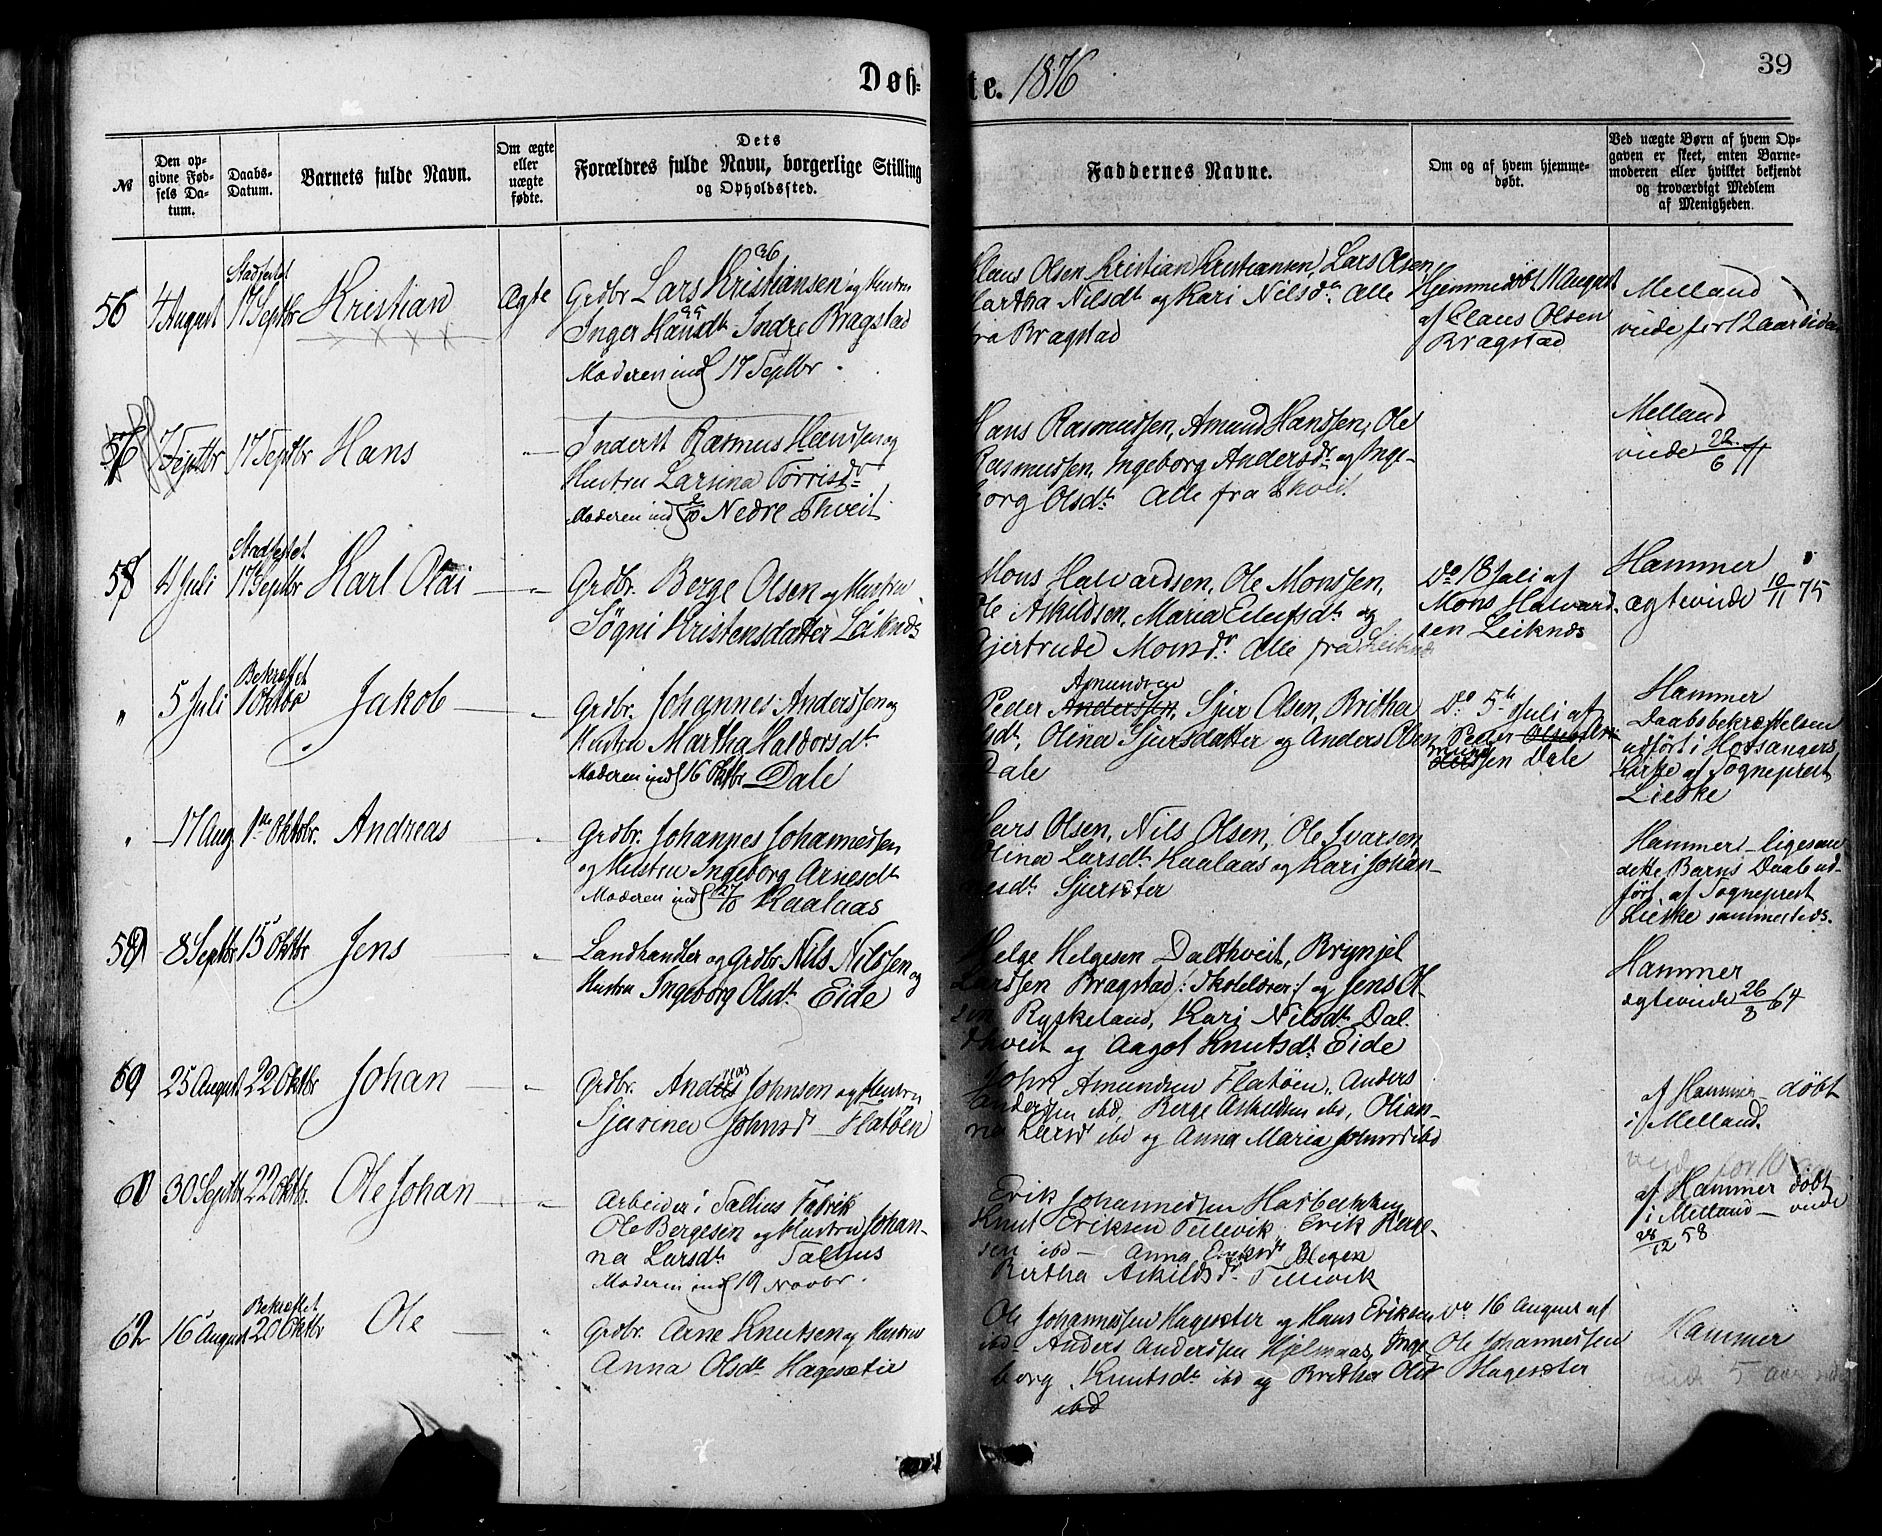 Døb-
te. 1876
39
№
Den op-
givne Fød-
sels Da-
tum.
Daabs-
Datum.
Barnets fulde Navn.
Om ægte
eller
uægte
fødte.
Dets
Forældres fulde Navn, borgerlige Stilling
og Opholdssted.
Faddernes Navne.
Om og af hvem hjemme-
døbt.
Ved uægte Børn af hvem Op-
gaven er skeet, enten Barne-
moderen eller hvilket bekjendt
og troværdigt Medlem
af Menigheden.
56
4 August
Stadfestet
17 Septbr
Kristian
Ægte
36
Grdbr Lars Kristiansen og Hustru
Inger Hansdt Indre Bragstad
Moderen ind 17 Septbr.
Claus Olsen Kristian Kristiansen, Lars Olsen
Martha Nilsdt og Kari Nilsdt Alle
fra Bragstad
Hjemmedøbt 11 August
af Claus Olsen
Bragstad
Melland
viede for 12 aar siden
7 Septbr
17 Septbr
Hans
Inderst Rasmus Hansen og
Hustru Larsina Torrisdr
Moderen ind Nedre Thveit
Hans Rasmussen, Amund Hanssen, Ole
Rasmussen, Ingeborg Andersdt og Inge-
borg Olsdt Alle fra Thveit.
Melland
viede 22/6
4 Juli
Stadfestet
17 Septbr
Karl Olai
Grdbr. Berge Olsen og Hustru
Søgni Kristensdatter Leiknes
Mons Halvardsen, Ole Monssen,
Ole Askildsen, Maria Eilefsdt og
Gjertrude Monsdr. Alle fra Leiknes
Do 18 Juli af
Mons Halvard-
sen Leiknes
Hammer
ægteviede 10/11 75
"
5 Juli
Bekræftet
1 Oktbr
Jakob
Grdbr. Johannes Anderssen og
Hustru Martha Haldorsdt
Moderen ind 16 Oktbr. Dale
Amundsen
Peder Anderssen, Sjur Olsen, Brithe
sdt, Olina Sjursdatter og Anders Olsen
Dale
Do 5te Juli af
Peder Olsen Am
mundsen Dale
Hammer
Daabsbekræftelsen
udført i Hosangers
Kirke af Sogneprest
Lieske
"
17 Aug
1ste Oktobr.
Andreas
Grdbr. Johannes Johannessen
og Hustru Ingeborg Arnesdt
Moderen ind Kaalaas
Lars Olsen, Nils Olsen, Ole Ivarsen
Olina Larsdt Kaalaas og Kari Johan-
nesdt Sjursæter
Hammer – ligesom
dette Barns Daab ud-
ført af Sogneprest
Lieske sammesteds.
8 Septbr
15 Oktbr
Jens
Landhandler og Grdbr. Nils Nilssen og
Hustru Ingeborg Olsdt Eide
Helge Helgesen Dalthveit, Brynjel
Larssen Bragstad /: Skolelærer :/ og Jens Ol-
sen Rysjeland, Kari Nilsdt Dal-
thveit og Aagot Knutsdt Eide
Hammer
ægteviede 26/3 64
25 August
22 Oktbr
Johan
Grdbr. Andreas Johnsen og Hustru
Sjurina Johnsdt – Flatøen
John Amundsen Flatøen, Anders
Anderssen ibd, Berge Askildsen ibd, Olian-
na Larsdt ibd og Anna Maria Johnsdt ibd
af Hammer – døbt
i Melland.
30 Septbr
22 Oktbr.
Ole Johan
Arbeider i Salhus Fabrik
Ole Bergesen og Hustru Johan-
na Larsdt. Salhus
Moderen ind 19 Novbr.
Erik Johannessen Hasbakken
Knut Eriksen Tellevik, Erik Han-
sen ibd – Anna Eriksdt Blegen
Bertha Askildsdr Tellevik
af Hammer døbt
i Melland – viede
28/12 58
62
16 August
Bekræftet
20 Oktbr
Ole
Grdbr. Arne Knutsen og Hustru
Anna Olsdt Hagesæter
Ole Johannessen Hagesæter og Hans Eriksen
ibd Anders Anderssen Hjelmaas, Inge-
borg Knutsdt ibd og Brithe Olsdt
ibd
Do 16 August af
Ole Johannessen
Hagesæter
Hammer
viede 5 aar